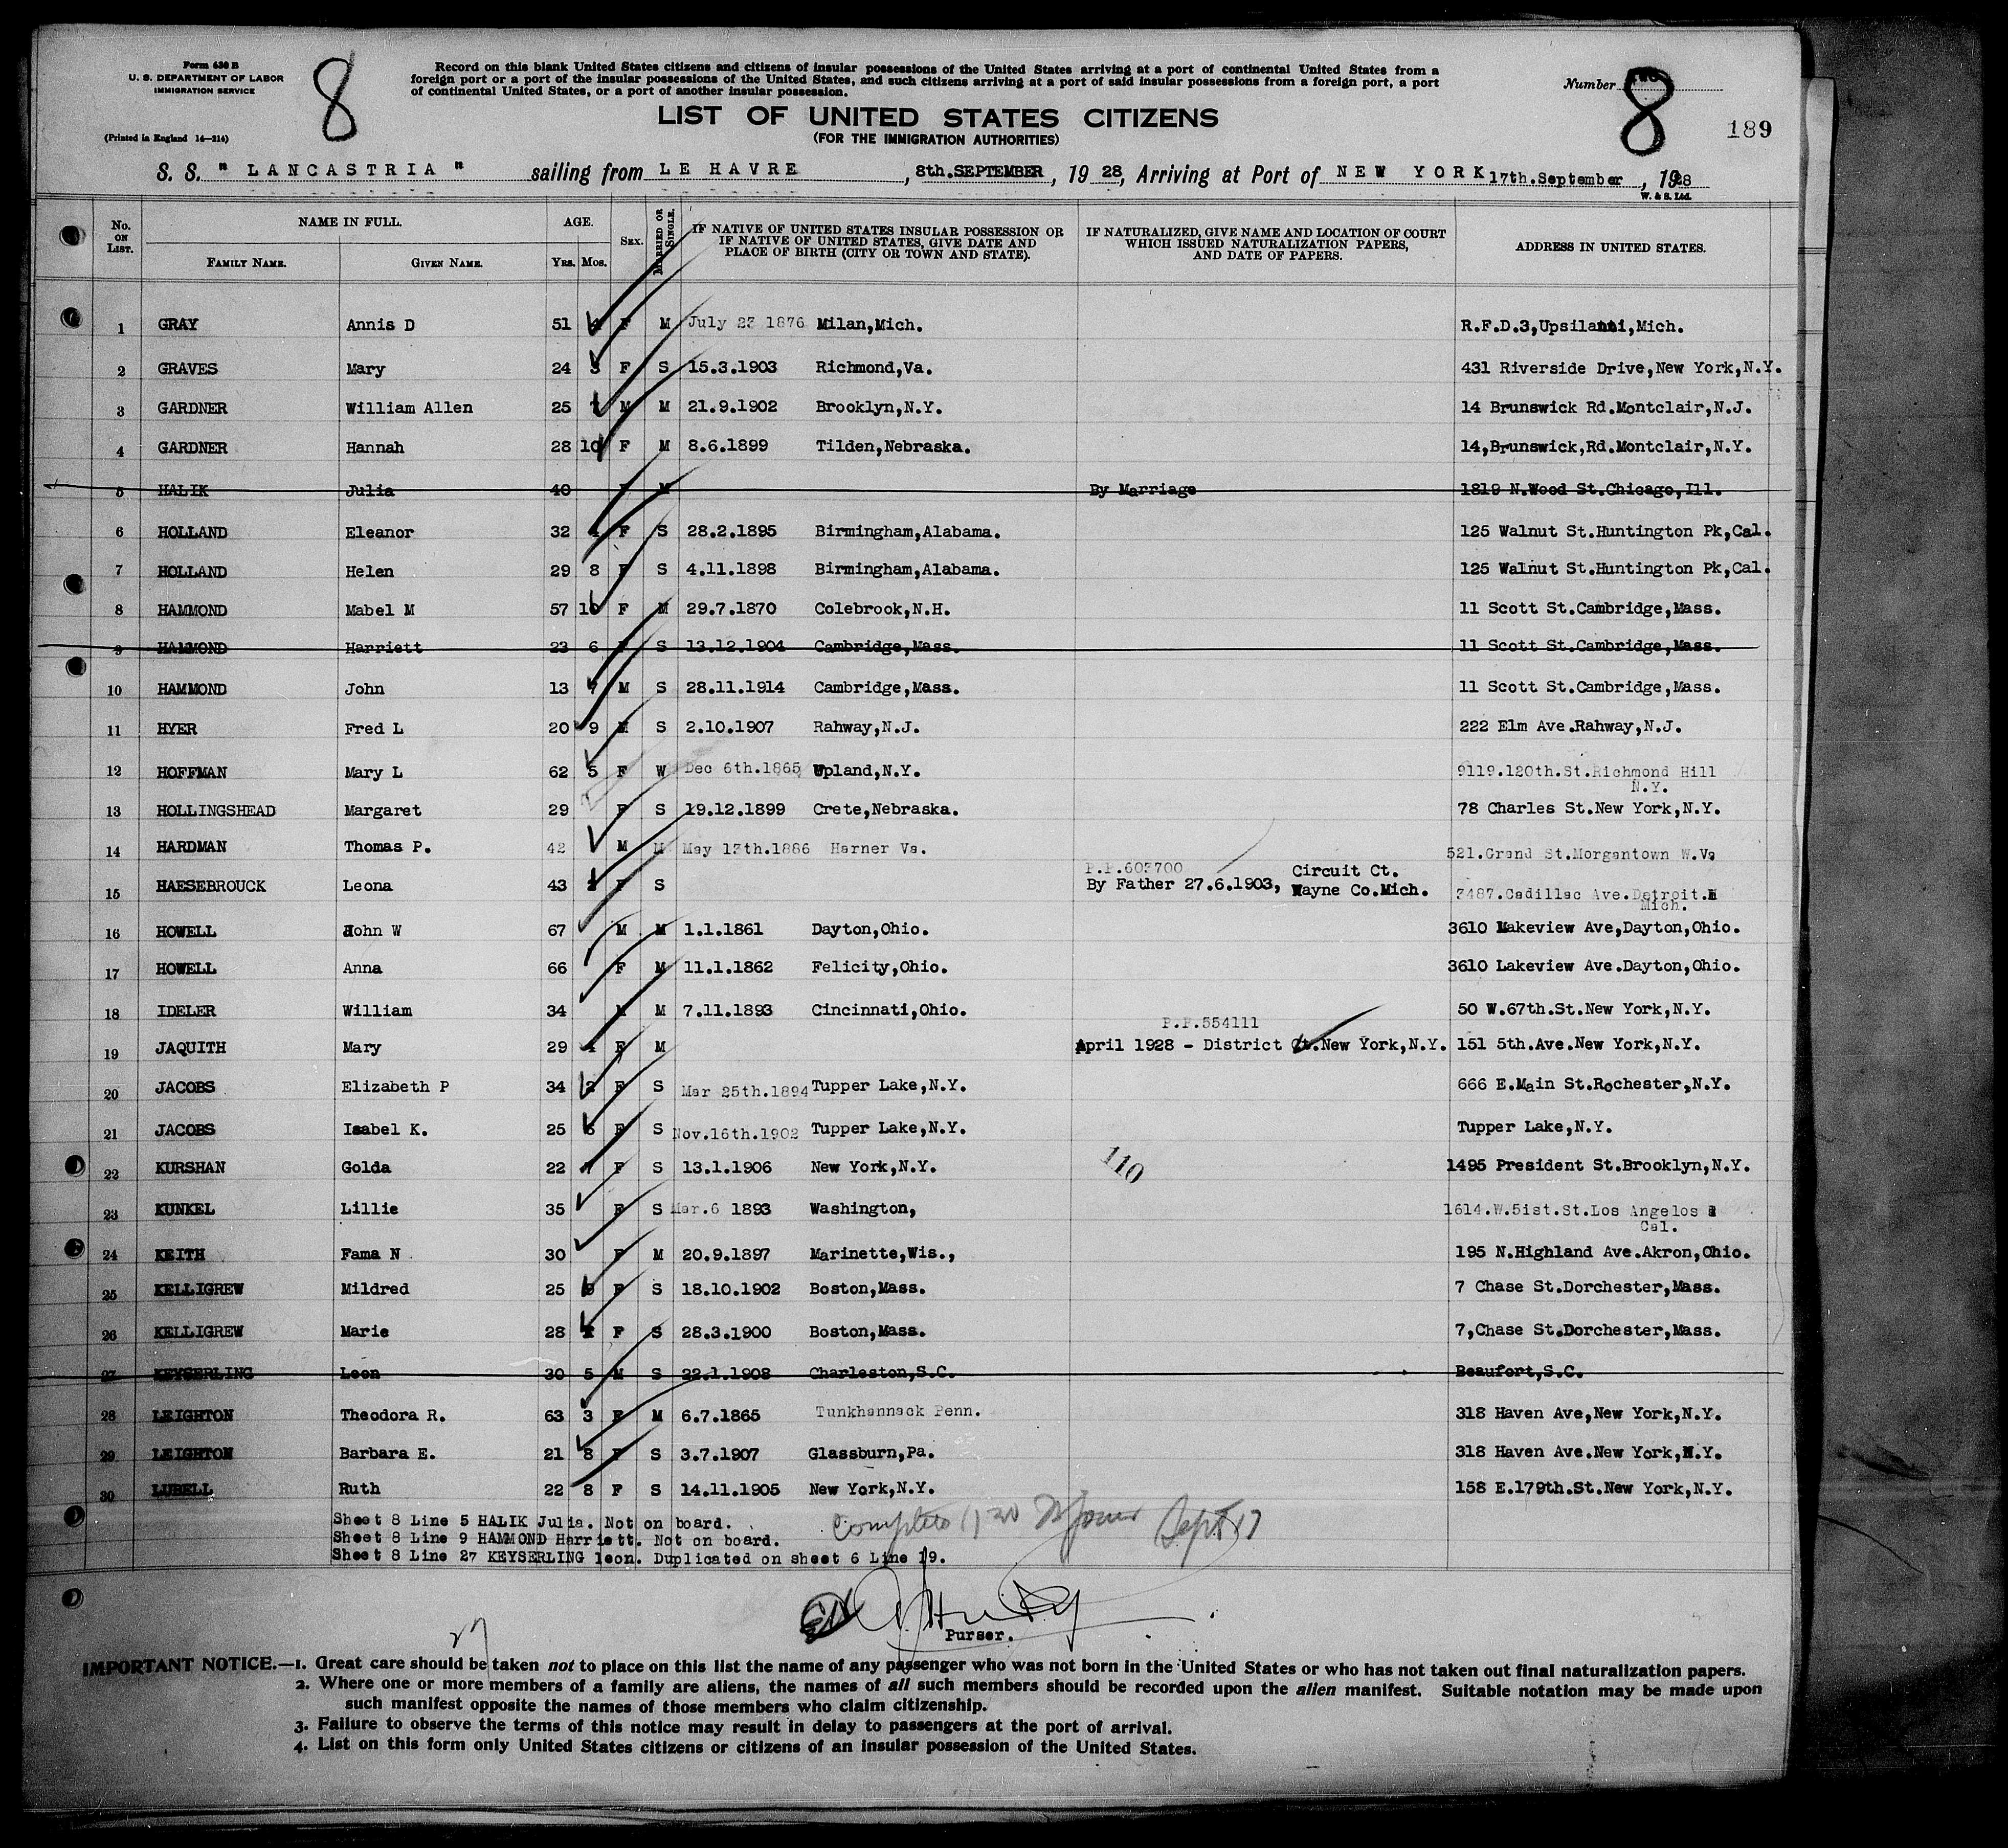 Form 630 B
U. S. DEPARTMENT OF LABOR
IMMIGRATION SERVICE
(Printed in England 14—214)
8
Record on this blank United States citizens and citizens of insular possessions of the United States arriving at a port of continental United States from a
foreign port or a port of the insular possessions of the United States, and such citizens arriving at a port of said insular possessions from a foreign port, a port
of continental United States, or a port of another insular possession.
Number 8
189
LIST OF UNITED STATES CITIZENS
(FOR THE IMMIGRATION AUTHORITIES)
S. S. " LANCASTRIA " sailing from LE HAVRE, 8th.SEPTEMBER, 19 28, Arriving at Port of NEW YORK 17th.September, 1928
W. & S. Ltd.
No. ON LIST. NAME IN FULL. FAMILY NAME. GIVEN NAME. AGE. YRS. MOS. SEX. MARRIED OR SINGLE. IF NATIVE OF UNITED STATES INSULAR POSSESSION OR IF NATIVE OF UNITED STATES, GIVE DATE AND PLACE OF BIRTH (CITY OR TOWN AND STATE). IF NATURALIZED, GIVE NAME AND LOCATION OF COURT WHICH ISSUED NATURALIZATION PAPERS, AND DATE OF PAPERS. ADDRESS IN UNITED STATES.
1 GRAY Annis D 51 F M July 23 1876 Milan,Mich. R.F.D.3,Upsilanti,Mich.
2 GRAVES Mary 24 3 F S 15.3.1903 Richmond,Va. 431 Riverside Drive,New York,N.Y.
3 GARDNER William Allen 25 M M 21.9.1902 Brooklyn,N.Y. 14 Brunswick Rd.Montclair,N.J.
4 GARDNER Hannah 28 10 F M 8.6.1899 Tilden,Nebraska. 14,Brunswick,Rd.Montclair,N.Y.
5 HALIK Julia 40 F M By Marriage 1819 N.Wood St.Chicago,Ill.
6 HOLLAND Eleanor 32 4 F S 28.2.1895 Birmingham,Alabama. 125 Walnut St.Huntington Pk,Cal.
7 HOLLAND Helen 29 8 F S 4.11.1898 Birmingham,Alabama. 125 Walnut St.Huntington Pk,Cal.
8 HAMMOND Mabel M 57 10 F M 29.7.1870 Colebrook,N.H. 11 Scott St.Cambridge,Mass.
9 HAMMOND Harriett 23 6 F S 13.12.1904 Cambridge,Mass. 11 Scott St.Cambridge,Mass.
10 HAMMOND John 13 7 M S 28.11.1914 Cambridge,Mass. 11 Scott St.Cambridge,Mass.
11 HYER Fred L 20 9 M S 2.10.1907 Rahway,N.J. 222 Elm Ave.Rahway,N.J.
12 HOFFMAN Mary L 62 5 F W Dec 6th.1865 Upland,N.Y. 9119.120th.St.Richmond Hill
N.Y.
13 HOLLINGSHEAD Margaret 29 F S 19.12.1899 Crete,Nebraska. 78 Charles St.New York,N.Y.
14 HARDMAN Thomas P. 42 M M May 13th.1886 Harner Va. 521.Grand St.Morgantown W.Va
P.P.603700 Circuit Ct.
15 HAESEBROUCK Leona 43 F S By Father 27.6.1903, Wayne Co.Mich. 3487.Cadillac Ave.Detroit.
Mich.
16 HOWELL John W 67 M M 1.1.1861 Dayton,Ohio. 3610 Lakeview Ave,Dayton,Ohio.
17 HOWELL Anna 66 F M 11.1.1862 Felicity,Ohio. 3610 Lakeview Ave.Dayton,Ohio.
18 IDELER William 34 M M 7.11.1893 Cincinnati,Ohio. 50 W.67th.St.New York,N.Y.
P.P.554111
19 JAQUITH Mary 29 4 F M April 1928 - District Ct.New York,N.Y. 151 5th.Ave.New York,N.Y.
20 JACOBS Elizabeth P 34 2 F S Mar 25th.1894 Tupper Lake,N.Y. 666 E.Main St.Rochester,N.Y.
21 JACOBS Isabel K. 25 F S Nov.16th.1902 Tupper Lake,N.Y. Tupper Lake,N.Y.
22 KURSHAN Golda 22 7 F S 13.1.1906 New York,N.Y. 110 1495 President St.Brooklyn,N.Y.
23 KUNKEL Lillie 35 F S Mar.6 1893 Washington, 1614.W.51st.St.Los Angelos
Cal.
24 KEITH Fama N 30 F M 20.9.1897 Marinette,Wis., 195 N.Highland Ave.Akron,Ohio.
25 KELLIGREW Mildred 25 9 F S 18.10.1902 Boston,Mass. 7 Chase St.Dorchester,Mass.
26 KELLIGREW Marie 28 F S 28.3.1900 Boston,Mass. 7,Chase St.Dorchester,Mass.
27 KEYSERLING Leon 30 5 M S 22.1.1908 Charleston,S.C. Beaufort,S.C.
28 LEIGHTON Theodora R. 63 3 F M 6.7.1865 Tunkhannack Penn. 318 Haven Ave,New York,N.Y.
29 LEIGHTON Barbara E. 21 8 F S 3.7.1907 Glassburn,Pa. 318 Haven Ave.New York,N.Y.
30 LUBELL Ruth 22 8 F S 14.11.1905 New York,N.Y. 158 E.179th.St.New York,N.Y.
Sheet 8 Line 5 HALIK Julia. Not on board.
Sheet 8 Line 9 HAMMOND Harriett. Not on board.
Sheet 8 Line 27 KEYSERLING leon. Duplicated on sheet 6 Line 19.
Complete Sept 17
Purser.
27
IMPORTANT NOTICE.—1. Great care should be taken not to place on this list the name of any passenger who was not born in the United States or who has not taken out final naturalization papers.
2. Where one or more members of a family are aliens, the names of all such members should be recorded upon the alien manifest. Suitable notation may be made upon
such manifest opposite the names of those members who claim citizenship.
3. Failure to observe the terms of this notice may result in delay to passengers at the port of arrival.
4. List on this form only United States citizens or citizens of an insular possession of the United States.